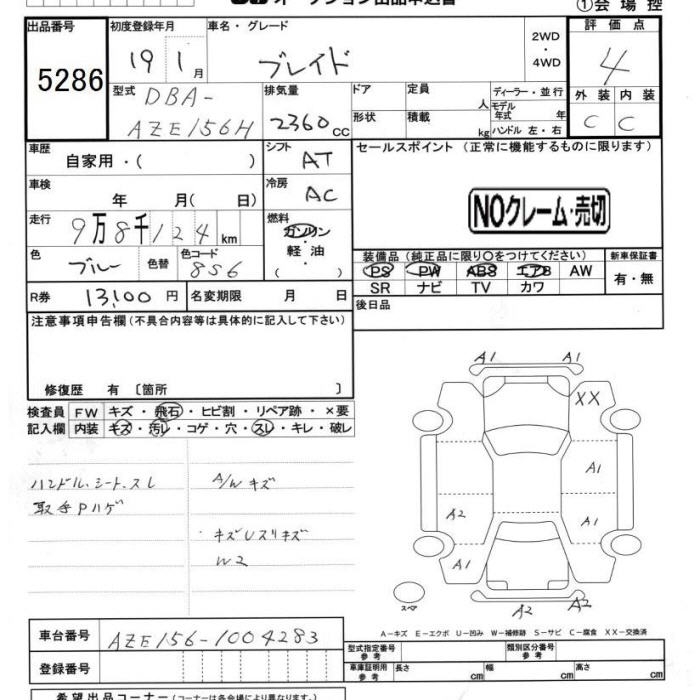 ①会場控
出品番号 初度登録年月 車名・グレード 評価点
5286 19 1月 ブレイド 2WD・4WD 4
型式 DBA-AZE156H 排気量 2360cc ドア 定員 人 ディーラー・並行 外装 内装
形状 積載 kg モデル年式 年 ハンドル 左・右 C C
車歴 自家用・( ) シフト AT セールスポイント (正常に機能するものに限ります)
車検 年 月( 日) 冷房 AC
NOクレーム・売切
走行 9万8千124km 燃料 ガソリン・軽油・( )
色 ブルー 色替 色コード 8S6
装備品 (純正品に限り○をつけてください) 新車保証書
PS PW ABS エアB AW 有・無
SR ナビ TV カワ
R券 13,100円 名変期限 月 日 後日品
注意事項申告欄(不具合内容等は具体的に記入して下さい)
修復歴 有 〔箇所 〕
検査員 FW キズ・飛石・ヒビ割・リペア跡・×要
記入欄 内装 キズ・汚レ・コゲ・穴・スレ・キレ・破レ
ハンドル、シート、スレ A/W キズ
取手Pハゲ
キズUスリキズ
W2
A1 A1
XX
A1
A2 A1
A1
スペア
A2 A2
A-キズ E-エクボ U-凹み W-補修跡 S-サビ C-腐食 XX-交換済
車台番号 AZE156-1004283 型式指定番号 参考 類別区分番号 参考
登録番号 車庫証明用 参考 長さ cm 幅 cm 高さ cm
希望出品コーナー(コーナーは各会場により異なります。)